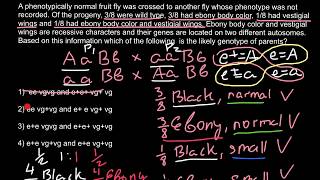 A phenotypically normal fruit fly was crossed to another fly whose phenotype was not
recorded. Of the progeny, 3/8 were wild type, 3/8 had ebony body color, 1/8 had vestigial
wings and 1/8 had ebony body color and vestigial wings. Ebony body color and vestigial
wings are recessive characters and their genes are located on two different autosomes.
Based on this information which of the following is the likely genotype of parents?
P¹ P²
Aa Bb × aa Bb e+=A e=A
Aa Bb × aa Bb e+=a e=a
1) ee vgvg and e+e+ vg+
2) ee vg+vg and e+ e vg+vg
3) e+e vgvg and e+e vg+vg
4) e+e vg+vg and e+e vg+vg
3/8 Black, normal V
3/8 Ebony, normal V
1/8 Black, small V
1/2 1:1 1/2
4 Black 4 Ebony